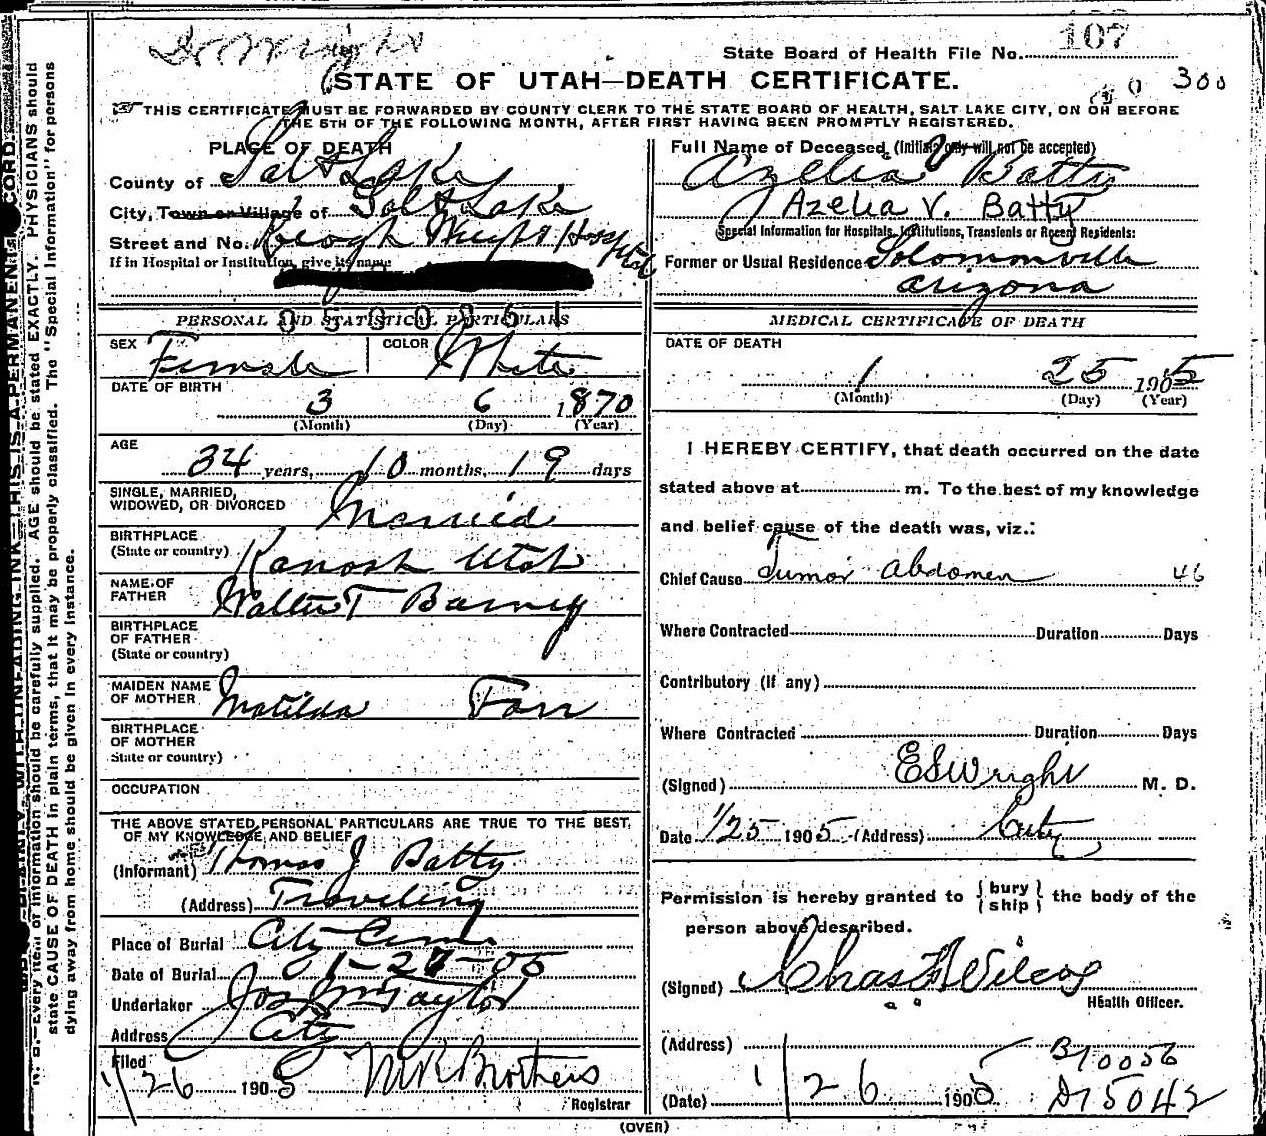 Dr Wright
State Board of Health File No. 107
STATE OF UTAH—DEATH CERTIFICATE.
300
THIS CERTIFICATE MUST BE FORWARDED BY COUNTY CLERK TO THE STATE BOARD OF HEALTH, SALT LAKE CITY, ON OR BEFORE
THE 5TH OF THE FOLLOWING MONTH, AFTER FIRST HAVING BEEN PROMPTLY REGISTERED.
PLACE OF DEATH
County of Salt Lake
City, Town or Village of Salt Lake
Street and No. Keogh Wright Hospital
If in Hospital or Institution, give its name
0500361
PERSONAL AND STATISTICAL PARTICULARS
SEX Female COLOR White
DATE OF BIRTH
3 6 1870
(Month) (Day) (Year)
AGE
34 years, 10 months, 19 days
SINGLE, MARRIED,
WIDOWED, OR DIVORCED Married
BIRTHPLACE
(State or country) Kanosh Utah
NAME OF
FATHER Walter T Barney
BIRTHPLACE
OF FATHER
(State or country)
MAIDEN NAME
OF MOTHER Matilda Farr
BIRTHPLACE
OF MOTHER
State or country)
OCCUPATION
THE ABOVE STATED PERSONAL PARTICULARS ARE TRUE TO THE BEST,
OF MY KNOWLEDGE AND BELIEF
(Informant) Thomas J Batty
(Address) Traveling
Place of Burial City Cem
Date of Burial 1-27-05
Undertaker Jos Wm Taylor
Address City
Filed
1/26 1905 M R Brothers
Registrar
Full Name of Deceased (Initials only will not be accepted)
Azelia V Batty
Azelia V. Batty
Special Information for Hospitals, Institutions, Transients or Recent Residents:
Former or Usual Residence Solomonville
Arizona
MEDICAL CERTIFICATE OF DEATH
DATE OF DEATH
1 25 1905
(Month) (Day) (Year)
I HEREBY CERTIFY, that death occurred on the date
stated above at m. To the best of my knowledge
and belief cause of the death was, viz.:
Chief Cause Tumor Abdomen 46
Where Contracted Duration Days
Contributory (if any)
Where Contracted Duration Days
(Signed) E S Wright M. D.
Date 1/25 1905 (Address) City
Permission is hereby granted to {bury
ship} the body of the
person above described.
(Signed) Chas F Wilcox
Health Officer.
(Address) B10056
(Date) 1/26 1905 D15042
(OVER)
state CAUSE OF DEATH in plain terms, that it may be properly classified. The "Special Information" for persons
dying away from home should be given in every instance.
N. B.—Every item of information should be carefully supplied. AGE should be stated EXACTLY. PHYSICIANS should